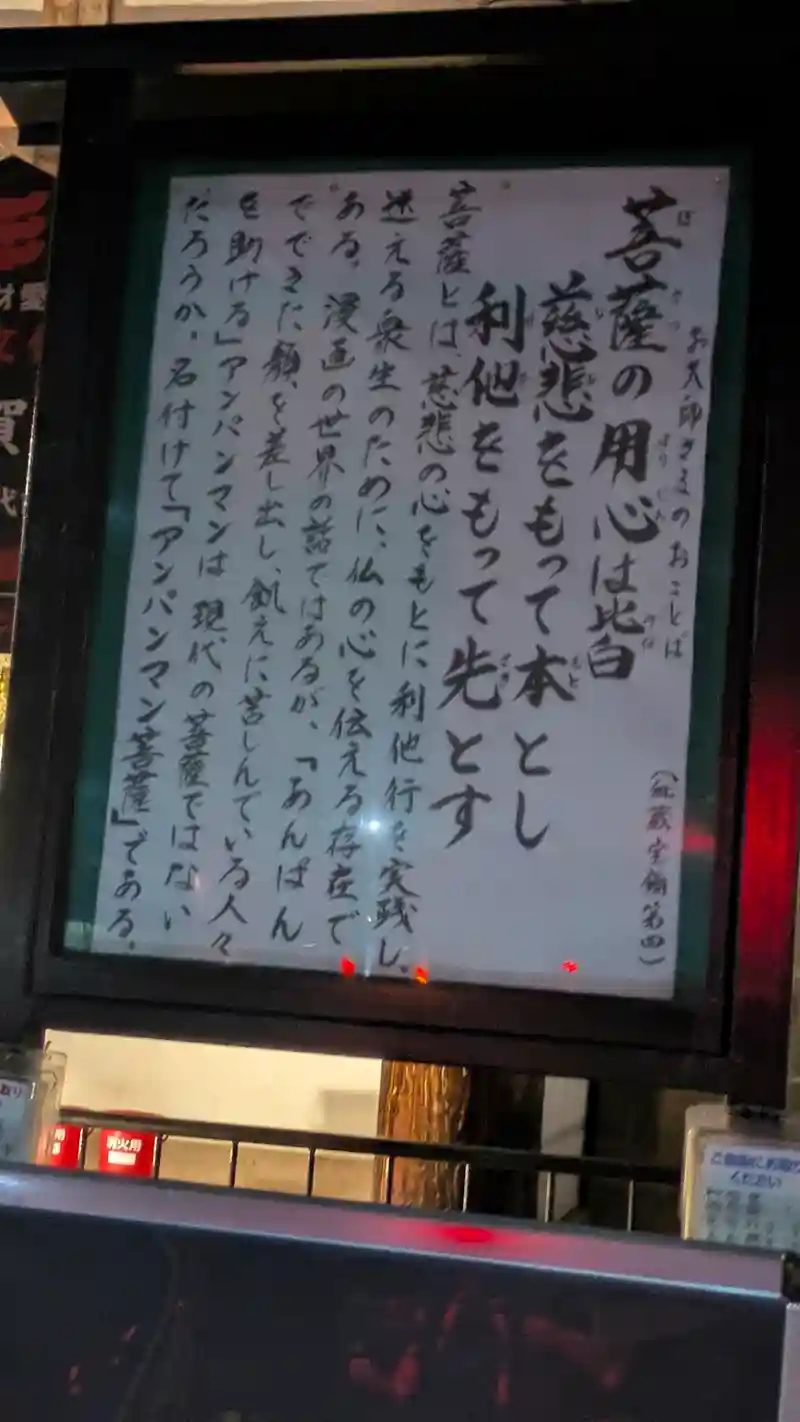 お大師さまのおことば
(秘蔵宝鑰第四)
菩薩の用心は皆
慈悲をもって本とし
利他をもって先とす
菩薩とは、慈悲の心をもとに利他行を実践し、
迷える衆生のために、仏の心を伝える存在で
ある。漫画の世界の話ではあるが、「あんぱん
でできた顔、を差し出し、飢えに苦しんでいる人々
を助ける」アンパンマンは現代の菩薩ではない
だろうか。名付けて「アンパンマン菩薩」である。
消火用
ください